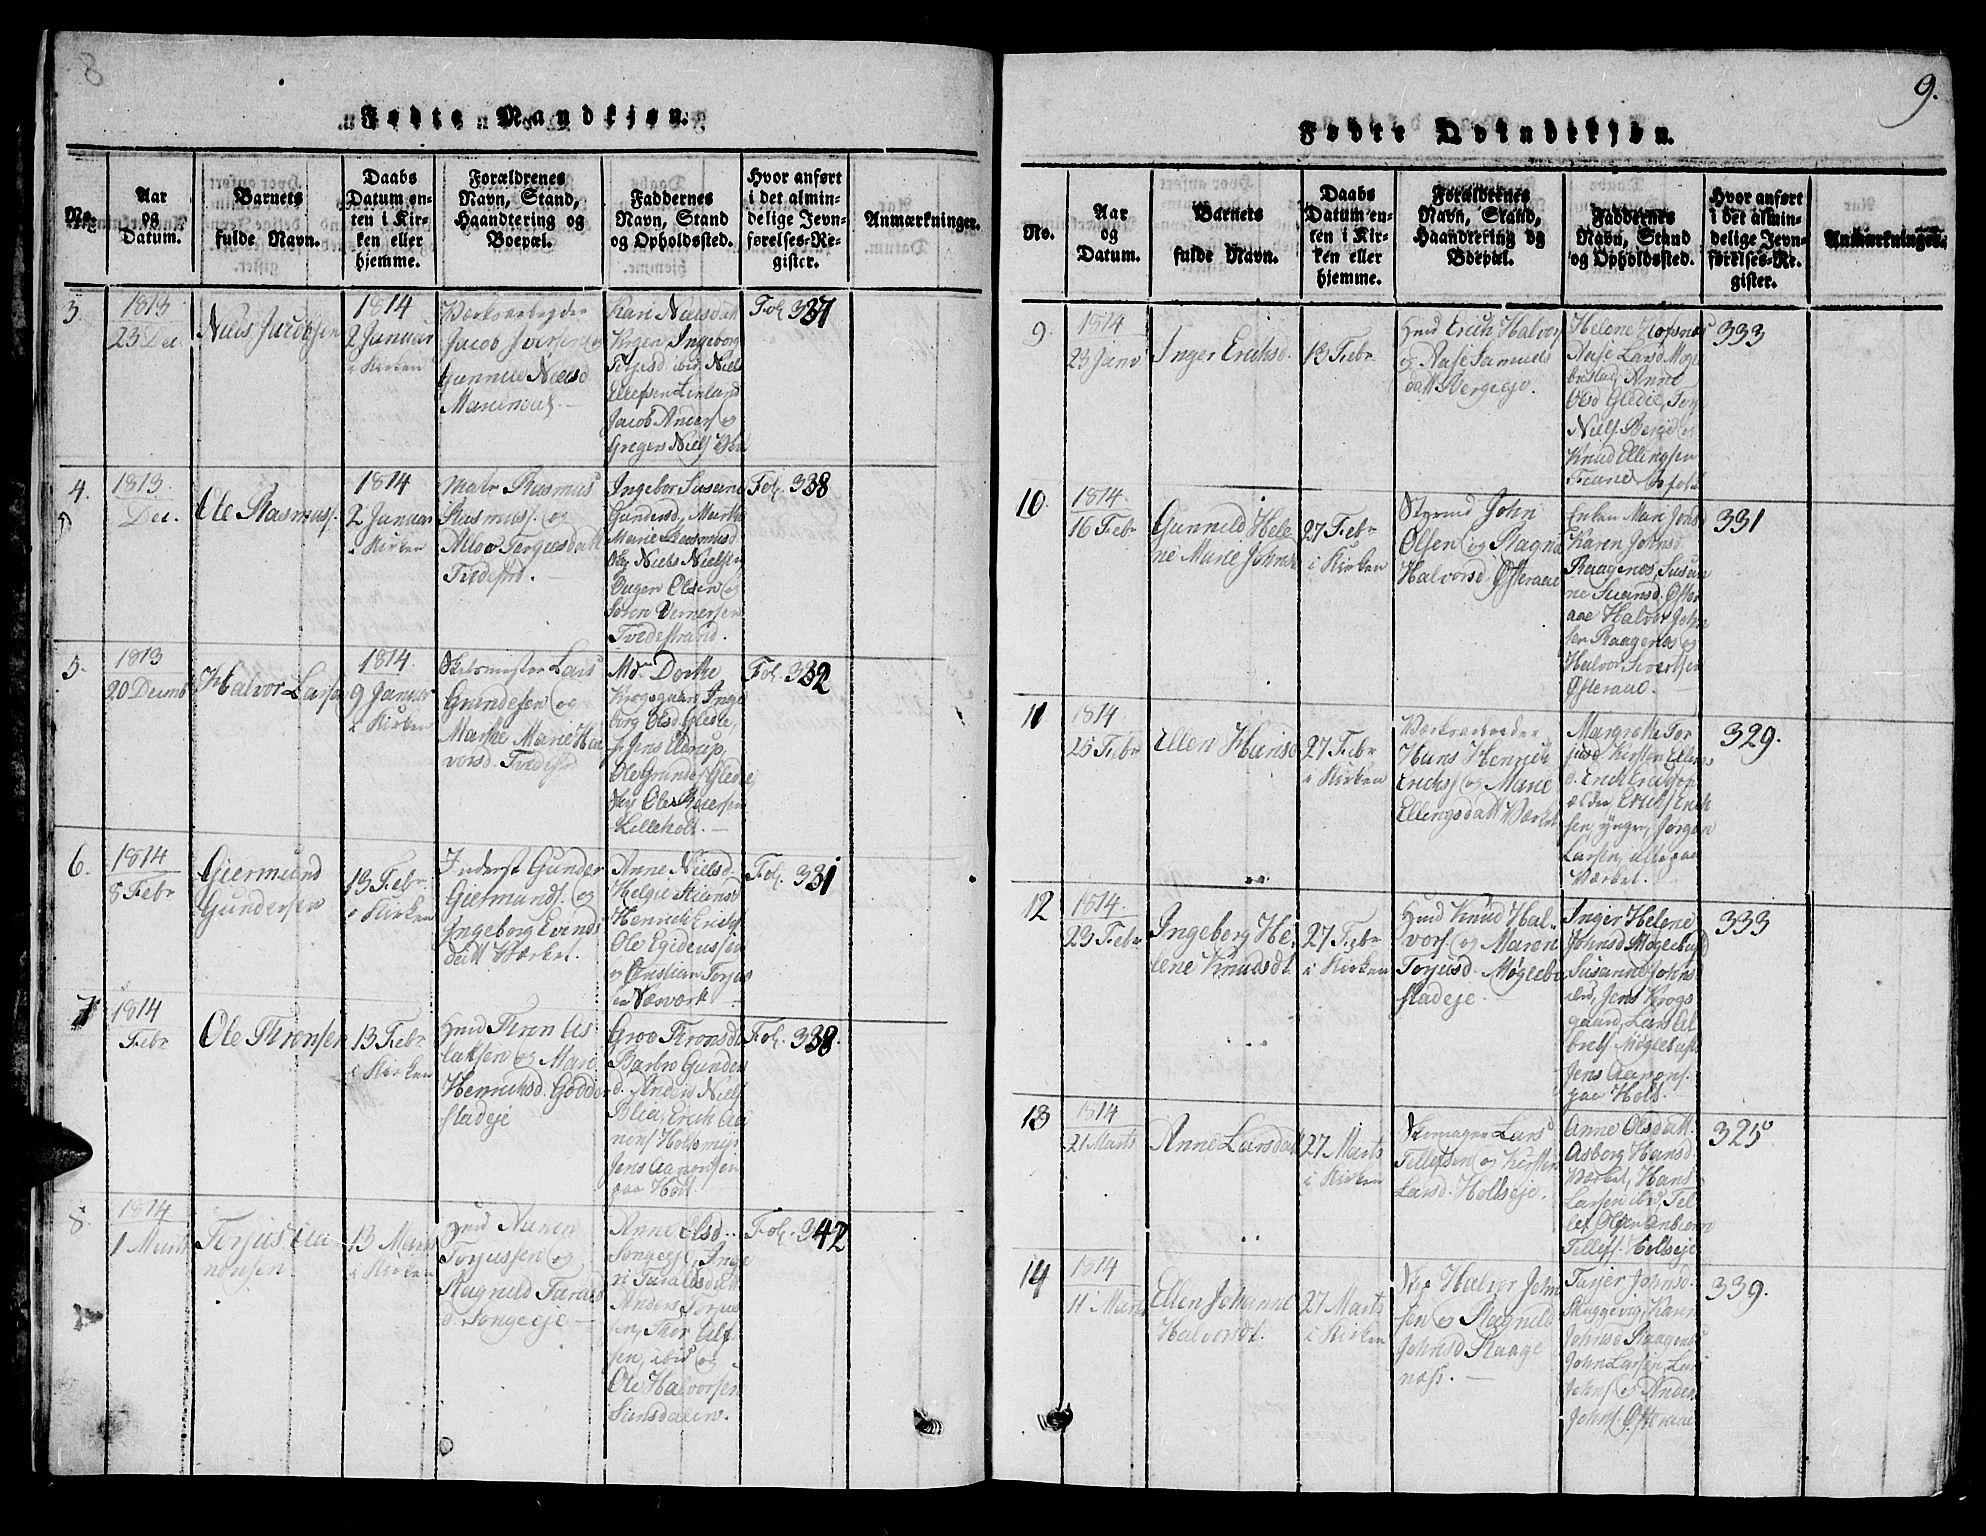 8
Fødte Mandkjøn.
No.
Aar
og
Datum.
Barnets
fulde Navn.
Daabs
Datum en-
ten i Kir-
ken eller
hjemme.
Forældrenes
Navn, Stand,
Haandtering og
Boepæl.
Faddernes
Navn, Stand
og Opholdssted.
Hvor anført
i det almin-
delige Jevn-
førelses-Re-
gister.
Anmærkninger.
3.
1813
23 Dec.
Niels Jacobsen
1814
2 Januar
i Kirken
Værksarbejder
Jacob Iversen og
Gunnild Nielsd
Kari Nielsdatt
Ingeborg
Torjusd. ibid. Niels
Ellefsen Linland
Jacob Anders og
Gregers Niels
Fol. 337
4.
1813.
Dec.
Ole Rasmuss.
1814
2 Januar
i Kirken
Matr Rasmus
Rasmuss. og
Tergiesdatt
Tvedestrd.
Ingebor Susane
Gundersd, Marthe
Marie Rasmusd
Niels Nielsen
Olsen og
Søren Vernersen
Tvedestrand.
Fol. 338
5.
1813
20 Decemb
Halvor Larsen
1814.
9 Januar
i Kirken
Lars
Gundersen og
Marthe Marie Hal
vorsd. Tvedestrd
Md. Dorthe
Krogsgaard, Inge
borg Olsd. Gledie,
Jens Elstrup,
Ole Gunders Glede
Ole Reiersen
Lilleholt.
Fol. 332
6.
1814
8 Febr
Giermund
Gundersen
13 Febr.
i Kirken
Inderst Gunder
Giermunds. og
Ingeborg Evinds
datt Værket.
Anne Nielsd.
Helgie Stiensd
Henrich Erichs
Ole Egideussen
og Christian Torjus
Fol. 331
7
1814
Febr
Ole Thronsen
13 Febr
i Kirken
Huusmd Thron As
laksen og Mari
Henrichsd. Godde
stadeje
Groe Thronsd.
Barbro Gunders
d. Anders Niels
Blia, Erich Aa
nons Holtsmyr
Jens Aaronsen
paa Holt.
Fol. 338.
8.
1814
1 Marts
Torjus Aa
nonsen.
13 Marts
i Kirken
Huusmd Aanen
Torjussen og
Ragnild Taralds
d. Songeeje
Anne Olsd.
Songeeje, Inge
ri Taraldsdatt
Anders Torjus
sen, Thor Alf
sen, ibid og
Ole Halvorsen
Sunsdalen.
Fol. 342
9.
Fødte Qvindekjøn.
No.
Aar
og
Datum.
Barnets
fulde Navn.
Daabs
Datum en-
ten i Kir-
ken eller
hjemme.
Forældrenes
Navn, Stand,
Haandtering og
Boepæl.
Faddernes
Navn, Stand
og Opholdssted.
Hvor anført
i det almin-
delige Jevn-
førelses-Re-
gister.
Anmærkninger.
9
1814
23 Janv
Inger Erichsd.
13 Febr
Huusmd Erich Halvor
og Aase Samuels
datt Bergeeje.
Helene
Aase Larsd. Møgle
bustad, Anne
Olsd Gledie, Torj
Niels Berge og
Knud Ellingsen
333
10.
1814.
16 Febr
Gunnild Hele
ne Marie Johnsd
27 Febr
i Kirken
Styrmd John
Olsen og Ragna
Halvorsd. Østeraae
Enken Mari Jensd
Karen Johnsd
Raagenæs, Susan
ne Svensd. Øster
aae Halvor John
sen Raagenæs og
Halvor Sivertsen
Østeraae.
331
11
1814
25 Febr
Ellen Hansd
27 Febr
i Kirken
Værksarbeider
Hans Henrich
Erichs og Marie
Ellingsdatt Værket
Margrethe Tor
jusd. Kirsten Ellings
d. Erich Erichsen
ældre, Erich Erich
sen, yngre, Jørgen
Larsen, alle paa
Værket.
329.
12
1814.
23 Febr
Ingeborg He-
lene Knudsdt.
27 Febr
i Kirken
Huusmd Knud Hal
vors og Maren
Torjusd. Møglebu
stadeje.
Inger Helene
Johnsd Møglebust
Susanne Johns
ibid, Jens Krogs
gaard, Lars Al
brets Møglebust
Jens Aarons.
paa Holt.
333
13
1814
21 Marts
Anne Larsdatt
27 Marts
i Kirken
Skomager Lars
Tellefsen og Kirsten
Larsd. Holtseje.
Anne Olsdatt.
Asborg Hansd
Værket, Hans
Larsen ibid Tel
lef Olsen Anbiørn
Tellefs. Holtseje
325
14
1814
11 Marts
Ellen Johanne
Halvorsdt.
27 Marts
i Kirken
Halvor John
sen og Ragnild
Johnsd Raage
næss.
Johnsd.
Karen
Johnsd Raagenæs
John Larsen, Lars
Johns. og Anders
Johns. Østeraae
339.